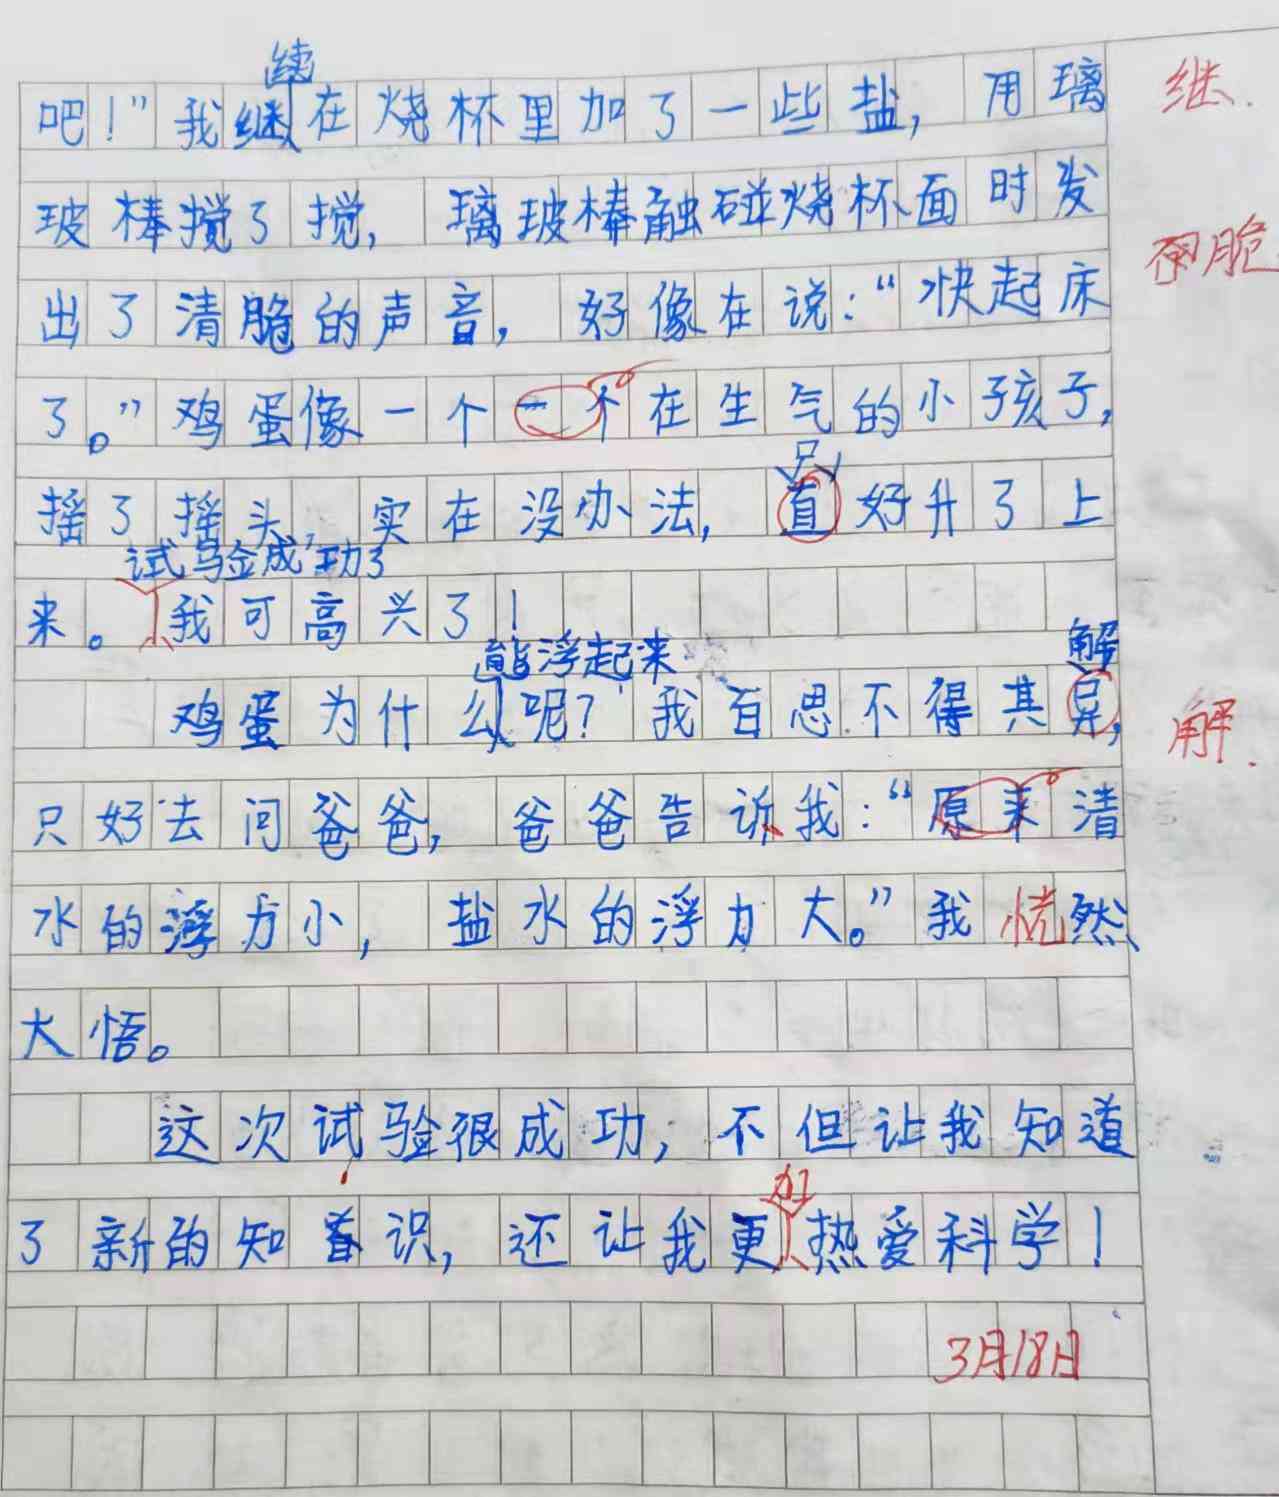 续
吧！”我继在烧杯里加了一些盐，用璃 继.
玻棒搅了搅，璃玻棒触碰烧杯面时发
出了清脆的声音，好像在说：“快起床 脆
了。”鸡蛋像一个一个在生气的小孩子，
只
摇了摇头，实在没办法，直好升了上
试验成功了
来。我可高兴了！
能浮起来 解
鸡蛋为什么呢？我百思不得其异，解.
只好去问爸爸，爸爸告诉我：“原来清
水的浮力小，盐水的浮力大。”我恍然
大悟。
这次试验很成功，不但让我知道
加
了新的知识，还让我更热爱科学！
3月18日